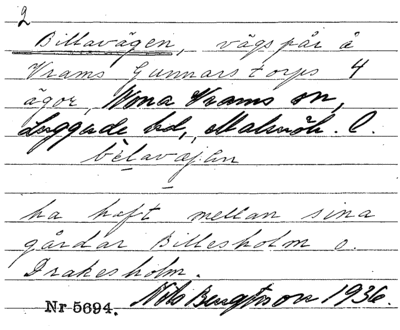 2
Billavägen, vägspår å
Vrams Gunnarstorps 4
ägor, Norra Vrams sn,
Luggude hd, Malmöh. l.
bèlavajen
ha haft mellan sina
gårdar Billesholm o.
Drakesholm.
Nr 5694. Nils Bengtsson 1936.